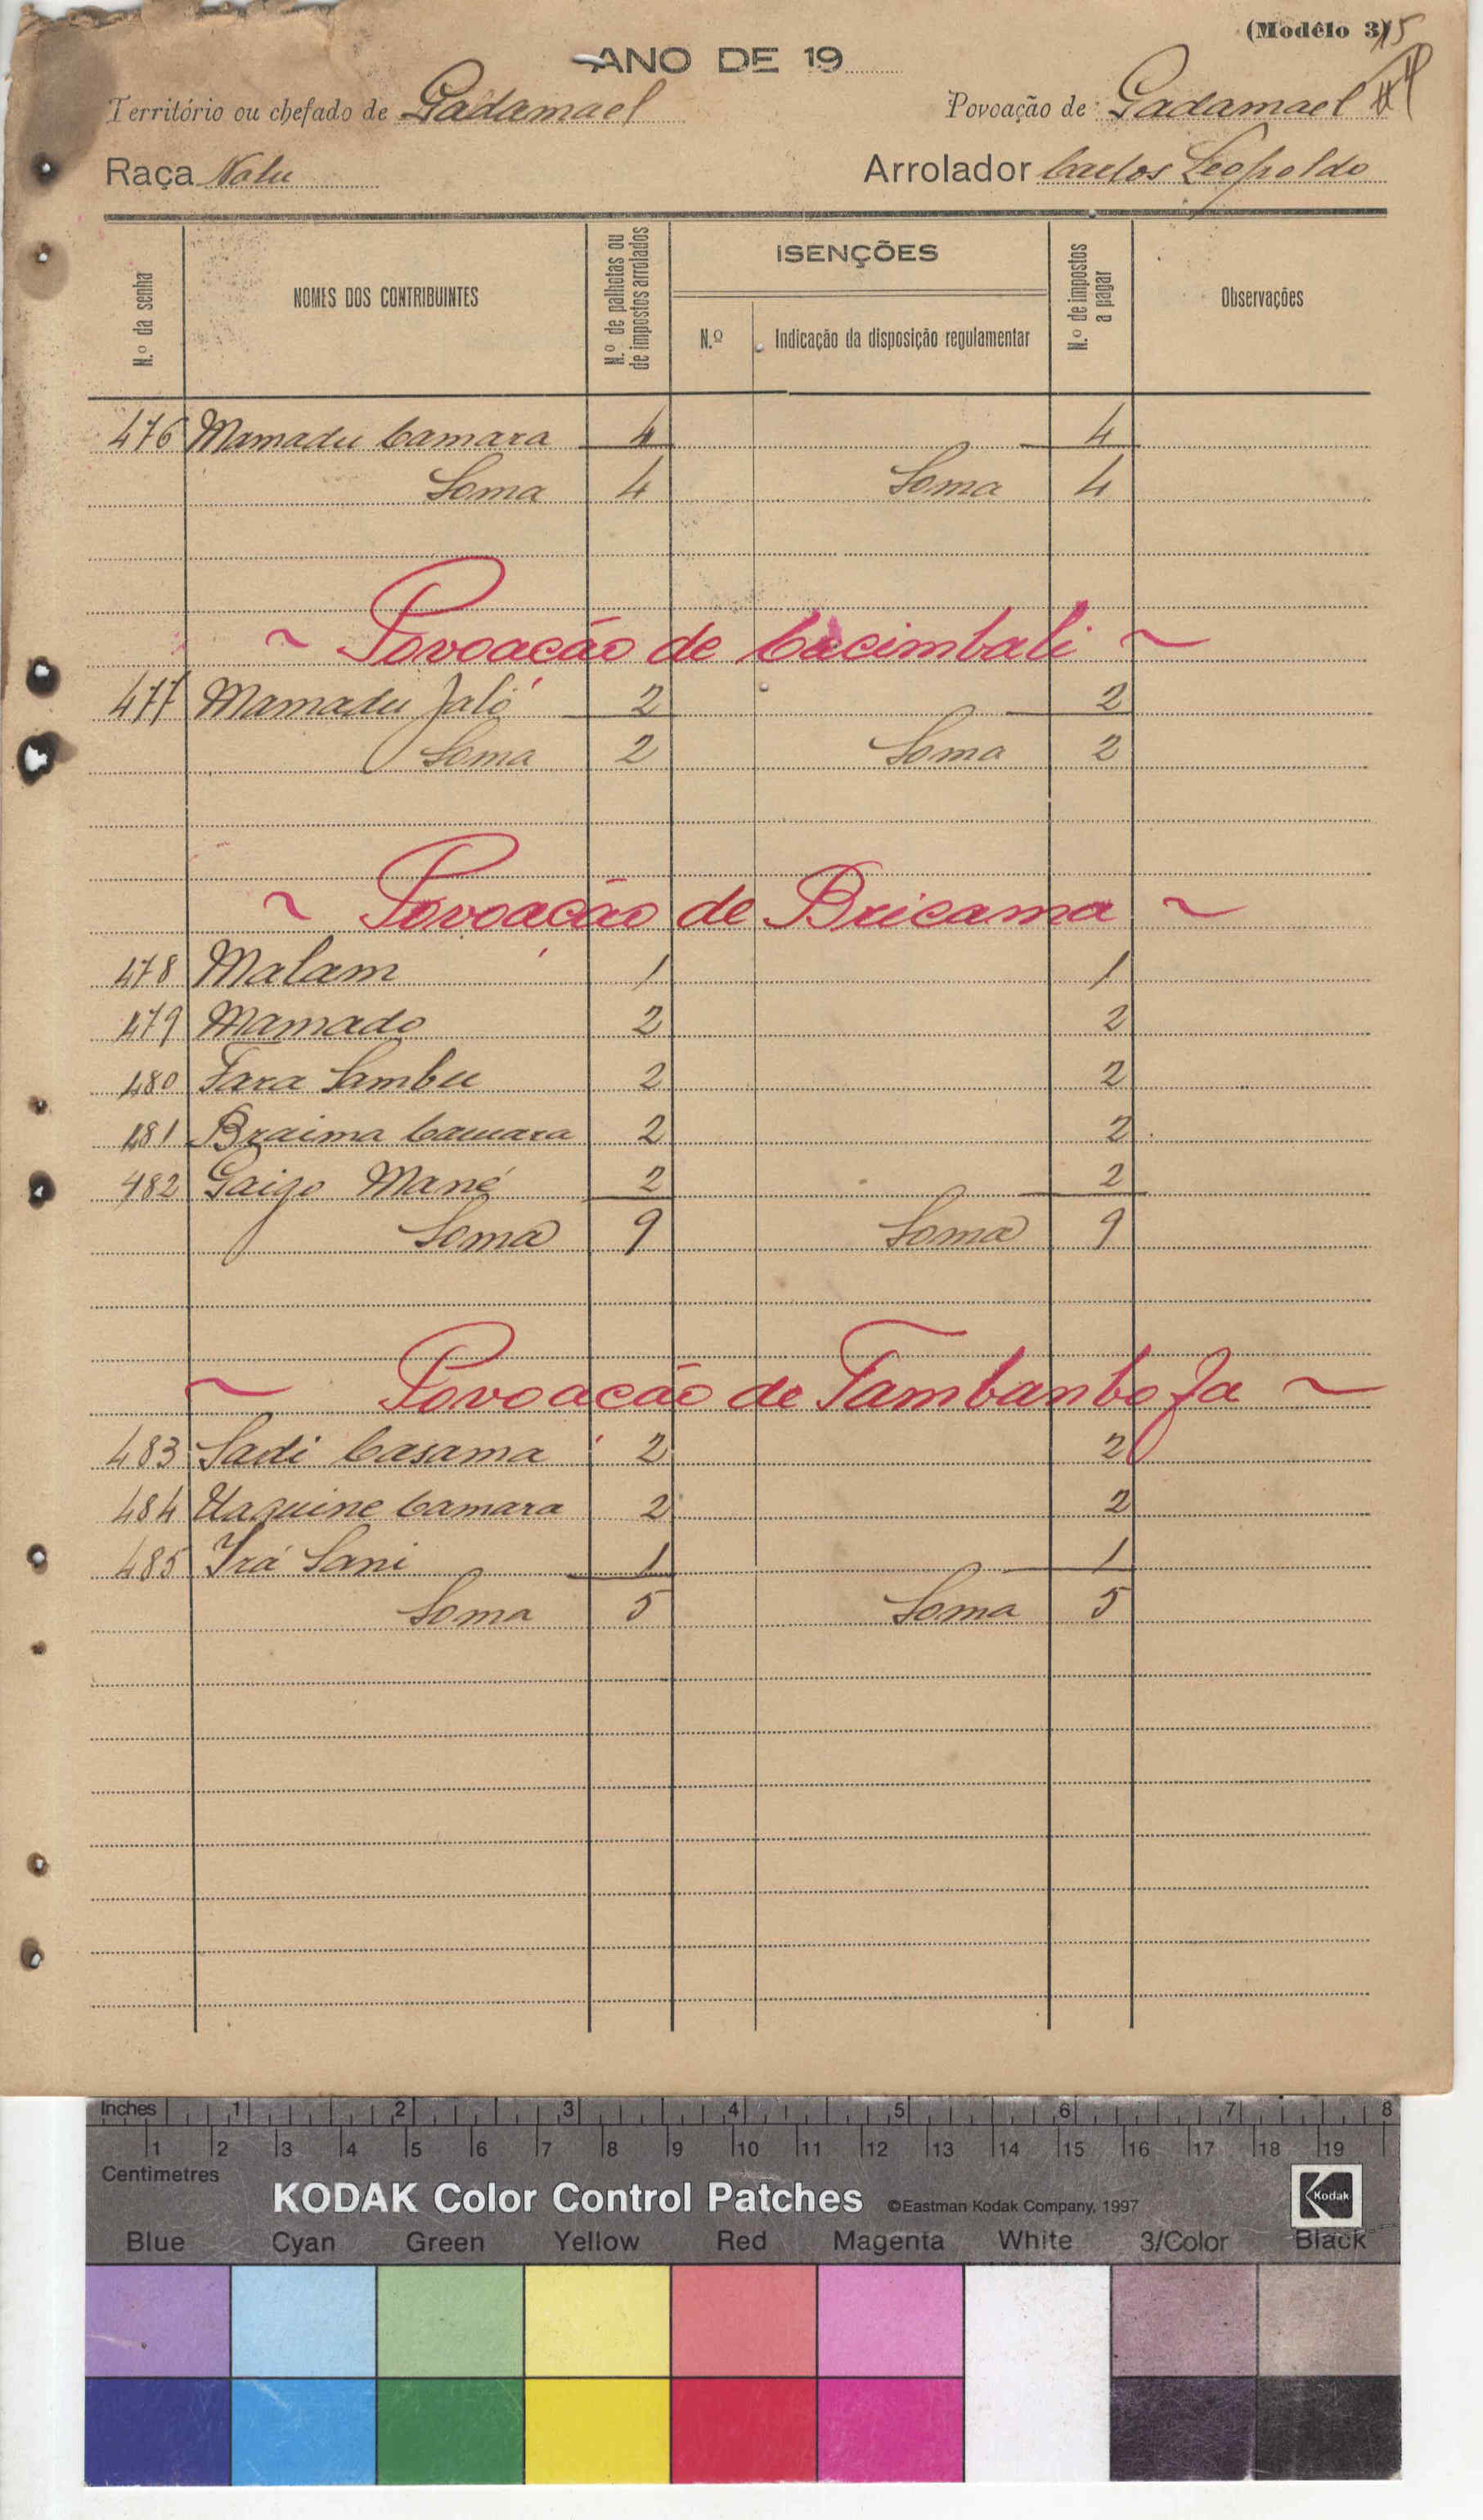 (Modêlo 3) 15
ANO DE 19
Território ou chefado de Gadamael Povoação de Gadamael
Raça Nalu Arrolador Carlos Leopoldo
N.º da senha NOMES DOS CONTRIBUINTES N.º de palhotas ou de impostos arrolados ISENÇÕES N.º de impostos a pagar Observações
N.º Indicação da disposição regulamentar
476 Mamadu Camara 4 4
Soma 4 Soma 4
~ Povoação de Cacimbali ~
477 Mamadu Jaló 2 2
Soma 2 Soma 2
~ Povoação de Bricama ~
478 Malam 1 1
479 Mamado 2 2
480 Fara Sambu 2 2
481 Braima Camara 2 2
482 Gaigo Mané 2 2
Soma 9 Soma 9
~ Povoação de Tambanbofa ~
483 Sadi Casama 2 2
484 Camara 2 2
485 Irá Sani 1 1
Soma 5 Soma 5
Inches 1 2 3 4 5 6 7 8
1 2 3 4 5 6 7 8 9 10 11 12 13 14 15 16 17 18 19
Centimetres
KODAK Color Control Patches ©Eastman Kodak Company, 1997 Kodak
Blue Cyan Green Yellow Red Magenta White 3/Color Black